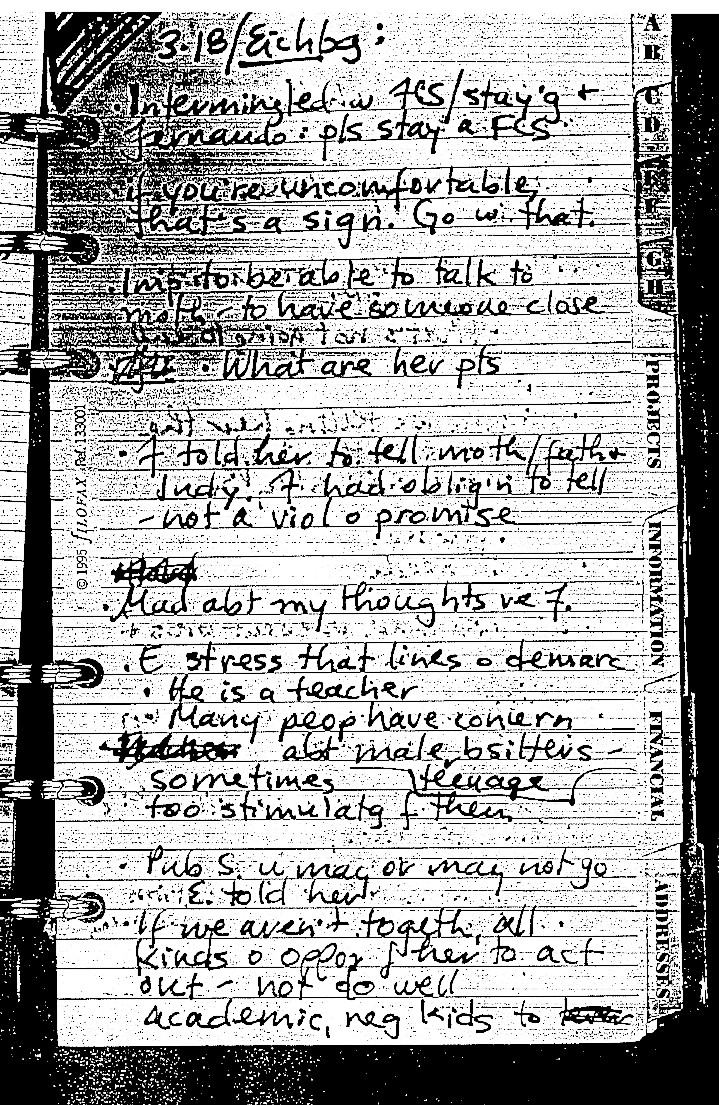 3.18/Eichbg:
• Intermingled w FCS/stay'g +
Fernando: pls stay a FCS
if you're uncomfortable,
that's a sign. Go w. that.
• Imp to be able to talk to
moth - to have someone close
• What are her pts
• F told her to tell moth/fath +
Judy. F had obligin to tell
- not a viol o promise
• Mad abt my thoughts re F.
• E stress that lines o demarc
• He is a teacher
• Many peop have concern
abt male bsitters -
sometimes teenage
too stimulatg f them
• Pub S. u may or may not go
E. told her
• If we aren't togeth, all
kinds o oppor f her to act
out - not do well
academic, neg kids to
© 1995 FILOFAX Ref. 33001
A
B
C
D
E
F
G
H
PROJECTS
INFORMATION
FINANCIAL
ADDRESSES